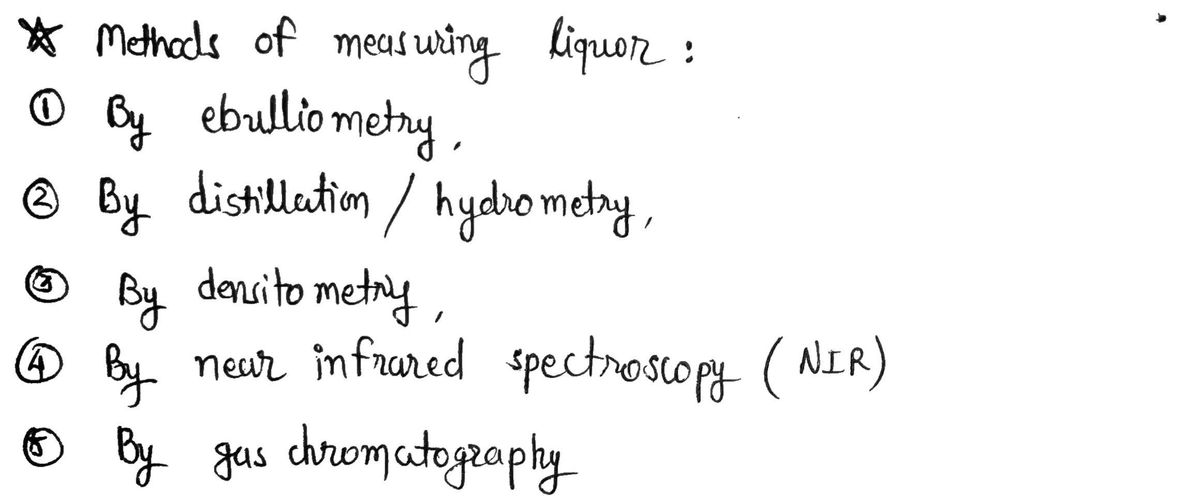 ☆ Methods of measuring liquor :
① By ebulliometry,
② By distillation / hydrometry,
③ By densitometry,
④ By near infrared spectroscopy (NIR)
⑤ By gas chromatography